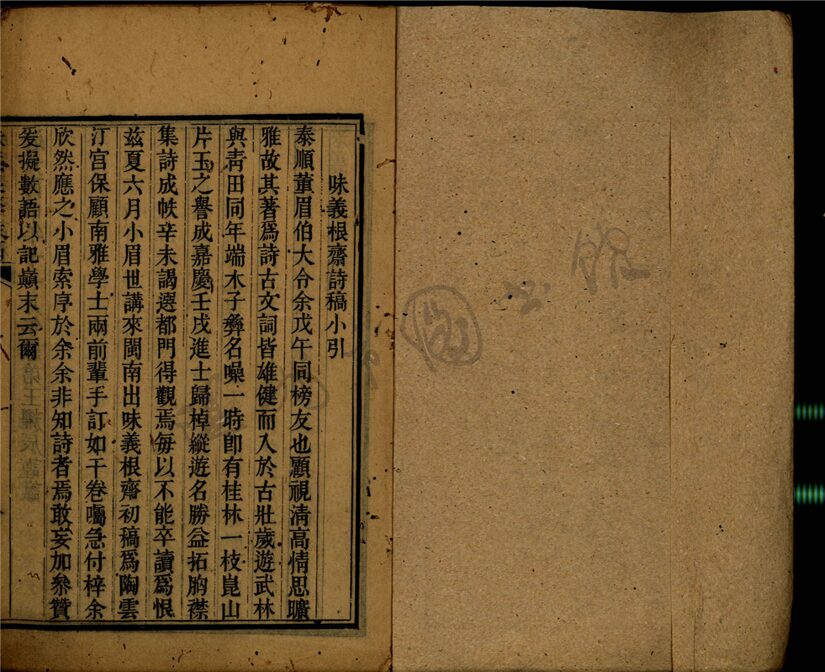 味義根齋詩稿小引
泰順董眉伯大令余戊午同榜友也顧視清高情思曠
雅故其著爲詩古文詞皆雄健而入於古壯歲遊武林
與青田同年端木子彝名噪一時卽有桂林一枝崑山
片玉之譽成嘉慶壬戌進士歸棹縱遊名勝益拓胸襟
集詩成帙辛未謁選都門得觀焉每以不能卒讀爲恨
茲夏六月小眉世講來閩南出味義根齋初稿爲陶雲
汀宮保顧南雅學士兩前輩手訂如干卷囑急付梓余
欣然應之小眉索序於余余非知詩者焉敢妄加參贊
爰擬數語以記巔末云爾